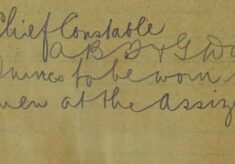 Chief Constable
A B D & G Div
to be worn
men at the Assiz